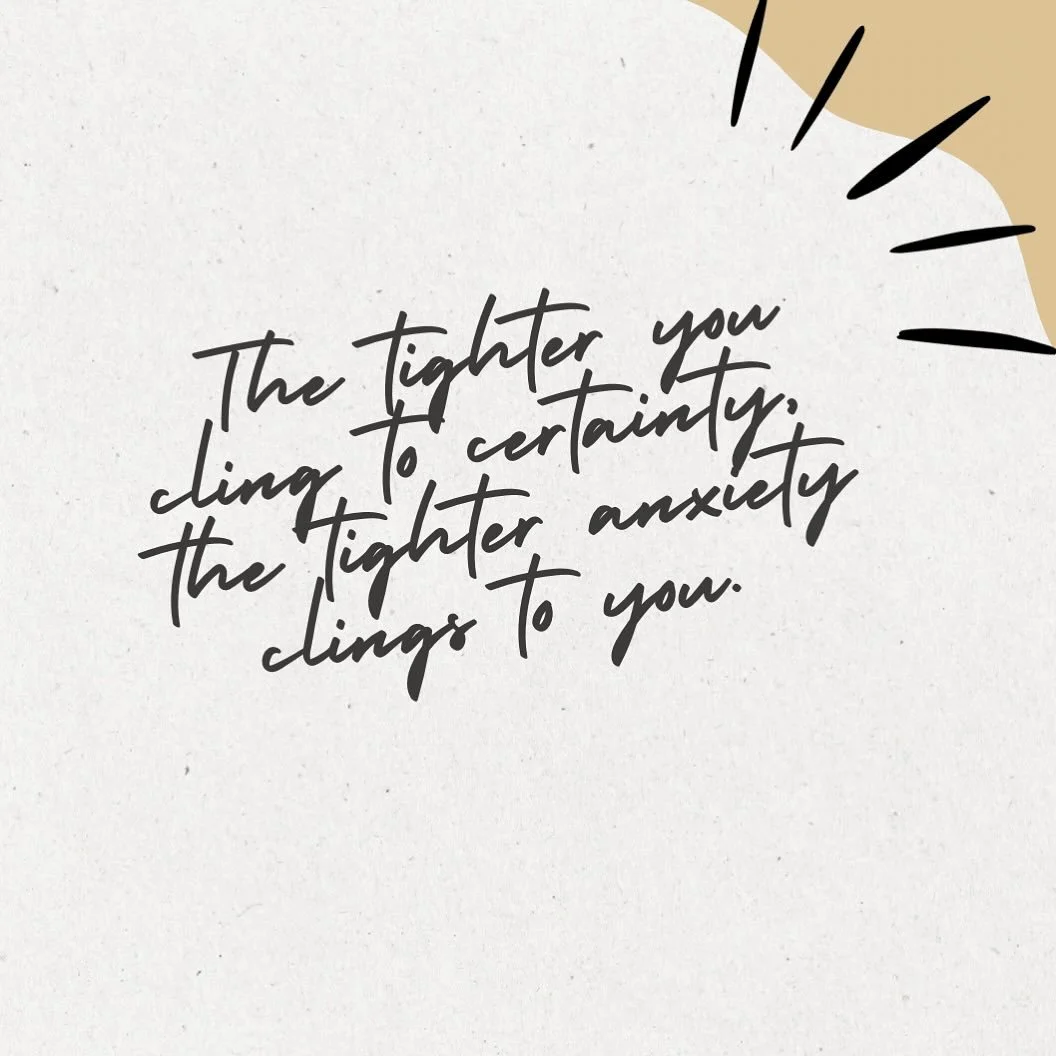 The tighter you
cling to certainty,
the tighter anxiety
clings to you.